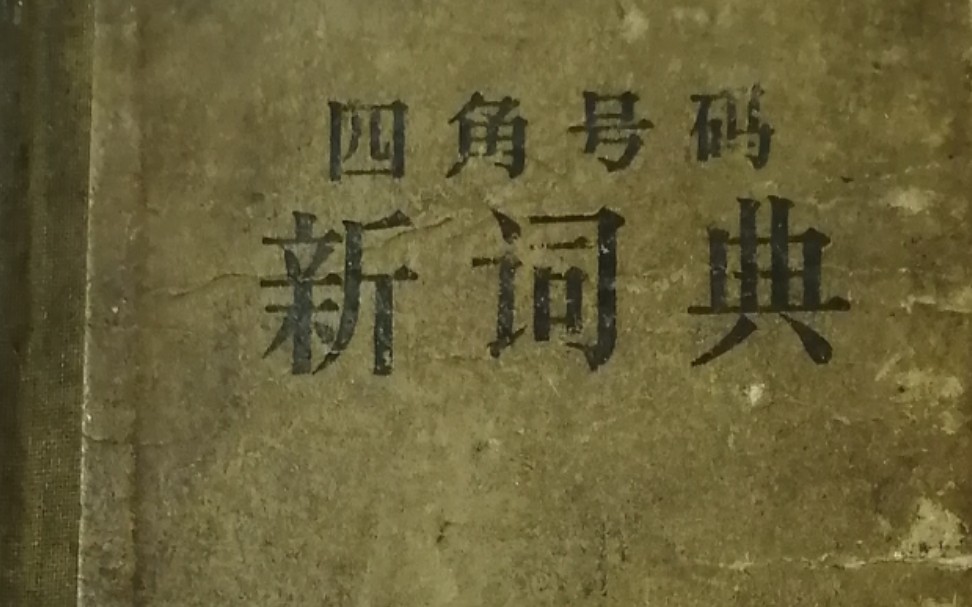 四角号码
新词典